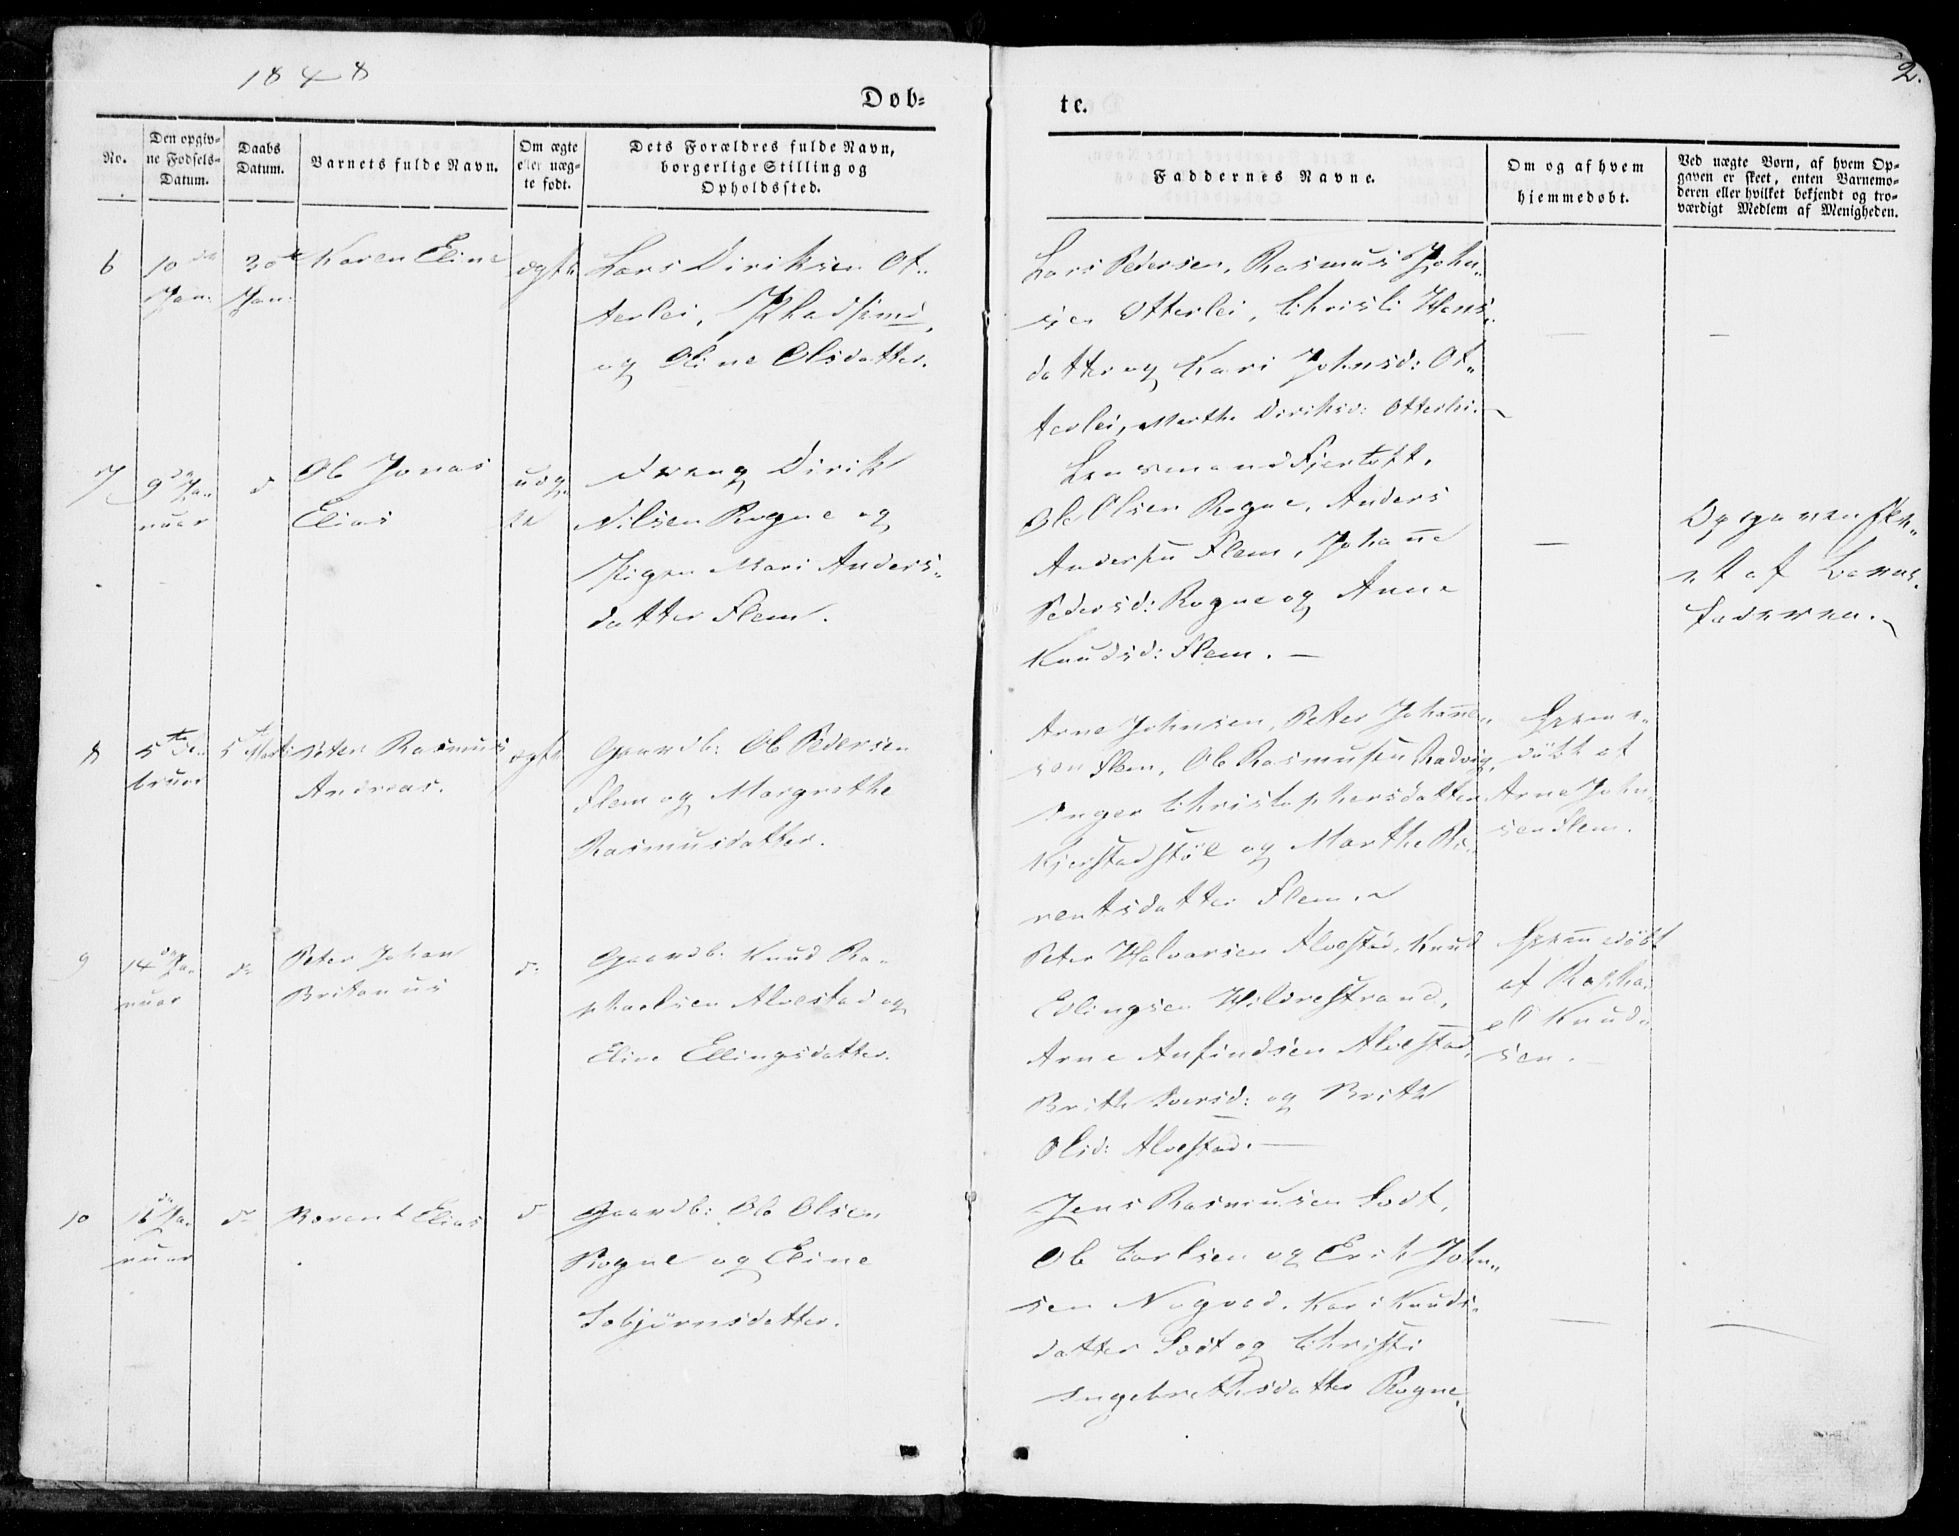 1848
2.
Døb=
te.
No.
Den opgiv=
ne Fødsels=
Datum.
Daabs
Datum.
Barnets fulde Navn.
Om ægte
eller uæg=
te født.
Dets Forældres fulde Navn,
borgerlige Stilling og
Opholdssted.
Faddernes Navne.
Om og af hvem
hjemmedøbt.
Ved uægte Børn, af hvem Op=
gaven er skeet, enten Barnemo=
deren eller hvilket bekjendt og tro=
værdigt Medlem af Menigheden.
6
10de
Jan:
30te
Jan:
Karen Eline
ægte
Lars Diriksen Ot=
terlei,
og Oline Olsdatter.
Lars Pedersen, Rasmus John=
sen Otterlei, Christi Hans=
datter og Kari Johnsd: Ot=
terlei, Marthe Diriksd: Otterlei.
—
—
7
9de Ja=
nuar
d
Ole Jonas
Elias
uæg=
te
Dreng Dirik
Nilsen Rogne og
Pigen Mari Anders=
datter Flem.
Lensmand Fjertoft,
Ole Olsen Rogne, Anders
Andersen Flem, Johanne
Pedersd: Rogne og Anne
Knudsd: Flem. —
—
Opgaven ske=
et af Barne=
faderen.
8
5te Fe=
bruar
5te Marts
Peter Rasmus
Andreas.
ægte
Gaardb: Ole Pedersen
Flem og Margrethe
Rasmusdatter.
Arne Johnsen, Peter Johanne=
sen Flem, Ole Rasmusen Rødvig,
Inger Christophersdatter
Kjerstadstøl og Marthe Be=
rentsdatter Flem.
Hjemme=
døbt af
Arne John=
sen Flem.
9
14de Ja=
nuar
do
Peter Johan
Britanus
do
Gaardb: Knud Ra=
phaelsen Alvestad og
Eline Ellingsdatter.
Peter Halvorsen Alvestad, Knud
Erlingsen Hildrestrand,
Arne Anfindsen Alvestad,
Brithe Iversd: og Brithe
Olsd: Alvestad. —
Hjemmedøbt
af Rapha=
el Knud=
sen.
10
16de Ja=
nuar
do
Berent Elias
do
Gaardb: Ole Olsen
Rogne og Eline
Torbjørnsdatter.
Jens Rasmusen Sødt,
Ole Carlsen og Erik John=
sen Nogved, Kari Knuds=
datter Sødt og Christi
Ingebrethsdatter Rogne.
—
—